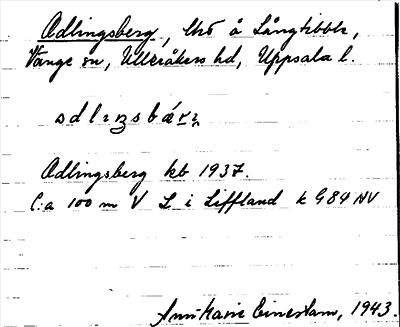 Adlingsberg, lht å Långtibble,
Vänge sn, Ulleråkers hd, Uppsala l.
Adlingsberg kb 1937.
C:a 100 m V L i Liffland k G84 NV
Ann-Marie Einerstam, 1943.